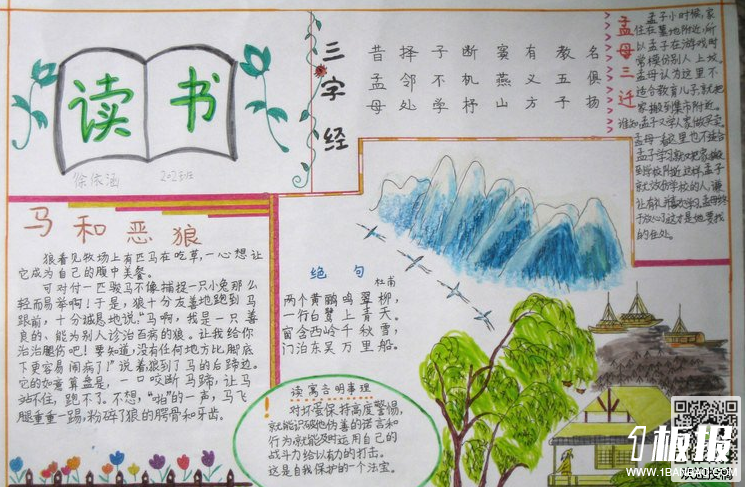 读书
徐依涵 2023班
三字经
昔孟母
择邻处
子不学
断机杼
窦燕山
有义方
教五子
名俱扬
孟母三迁
孟子小时候,家
住在墓地附近,所
以孟子在游戏时
常模仿别人上坟。
孟母认为这里不
适合教育儿子就把
家搬到集市附近。
谁知孟子又学人家做买卖。
孟母
这里也不适合
孟子学习
到学校附近
就
放心了这才是她要找
的住处。
马和恶狼
狼看见牧场上有匹马在吃草,一心想让
它成为自己的腹中美餐。
可对付一匹骏马不像捕捉一只小兔那么
轻而易举啊!于是,狼十分友善地跑到马
跟前,十分诚恳地说:“马啊,我是一只善
良的、能为别人诊治百病的狼。让我给你
治治腿伤吧!要知道,没有任何地方比脚底
下更容易闹病了!”说着狼到了马的后蹄边。
它的如意算盘是,一口咬断马蹄,让马
站不住,跑不了。不想,“啪”的一声,马飞
腿重重一踢,粉碎了狼的腭骨和牙齿。
绝句
杜甫
两个黄鹂鸣翠柳,
一行白鹭上青天。
窗含西岭千秋雪,
门泊东吴万里船。
读寓言明事理
对坏蛋保持高度警惕,
就能识破他伪善的诺言和
行为就能及时运用自己的
战斗力给以有力的打击。
这是自我保护的一个法宝。
1板报
WWW.1BANBAO.COM
欢迎投稿